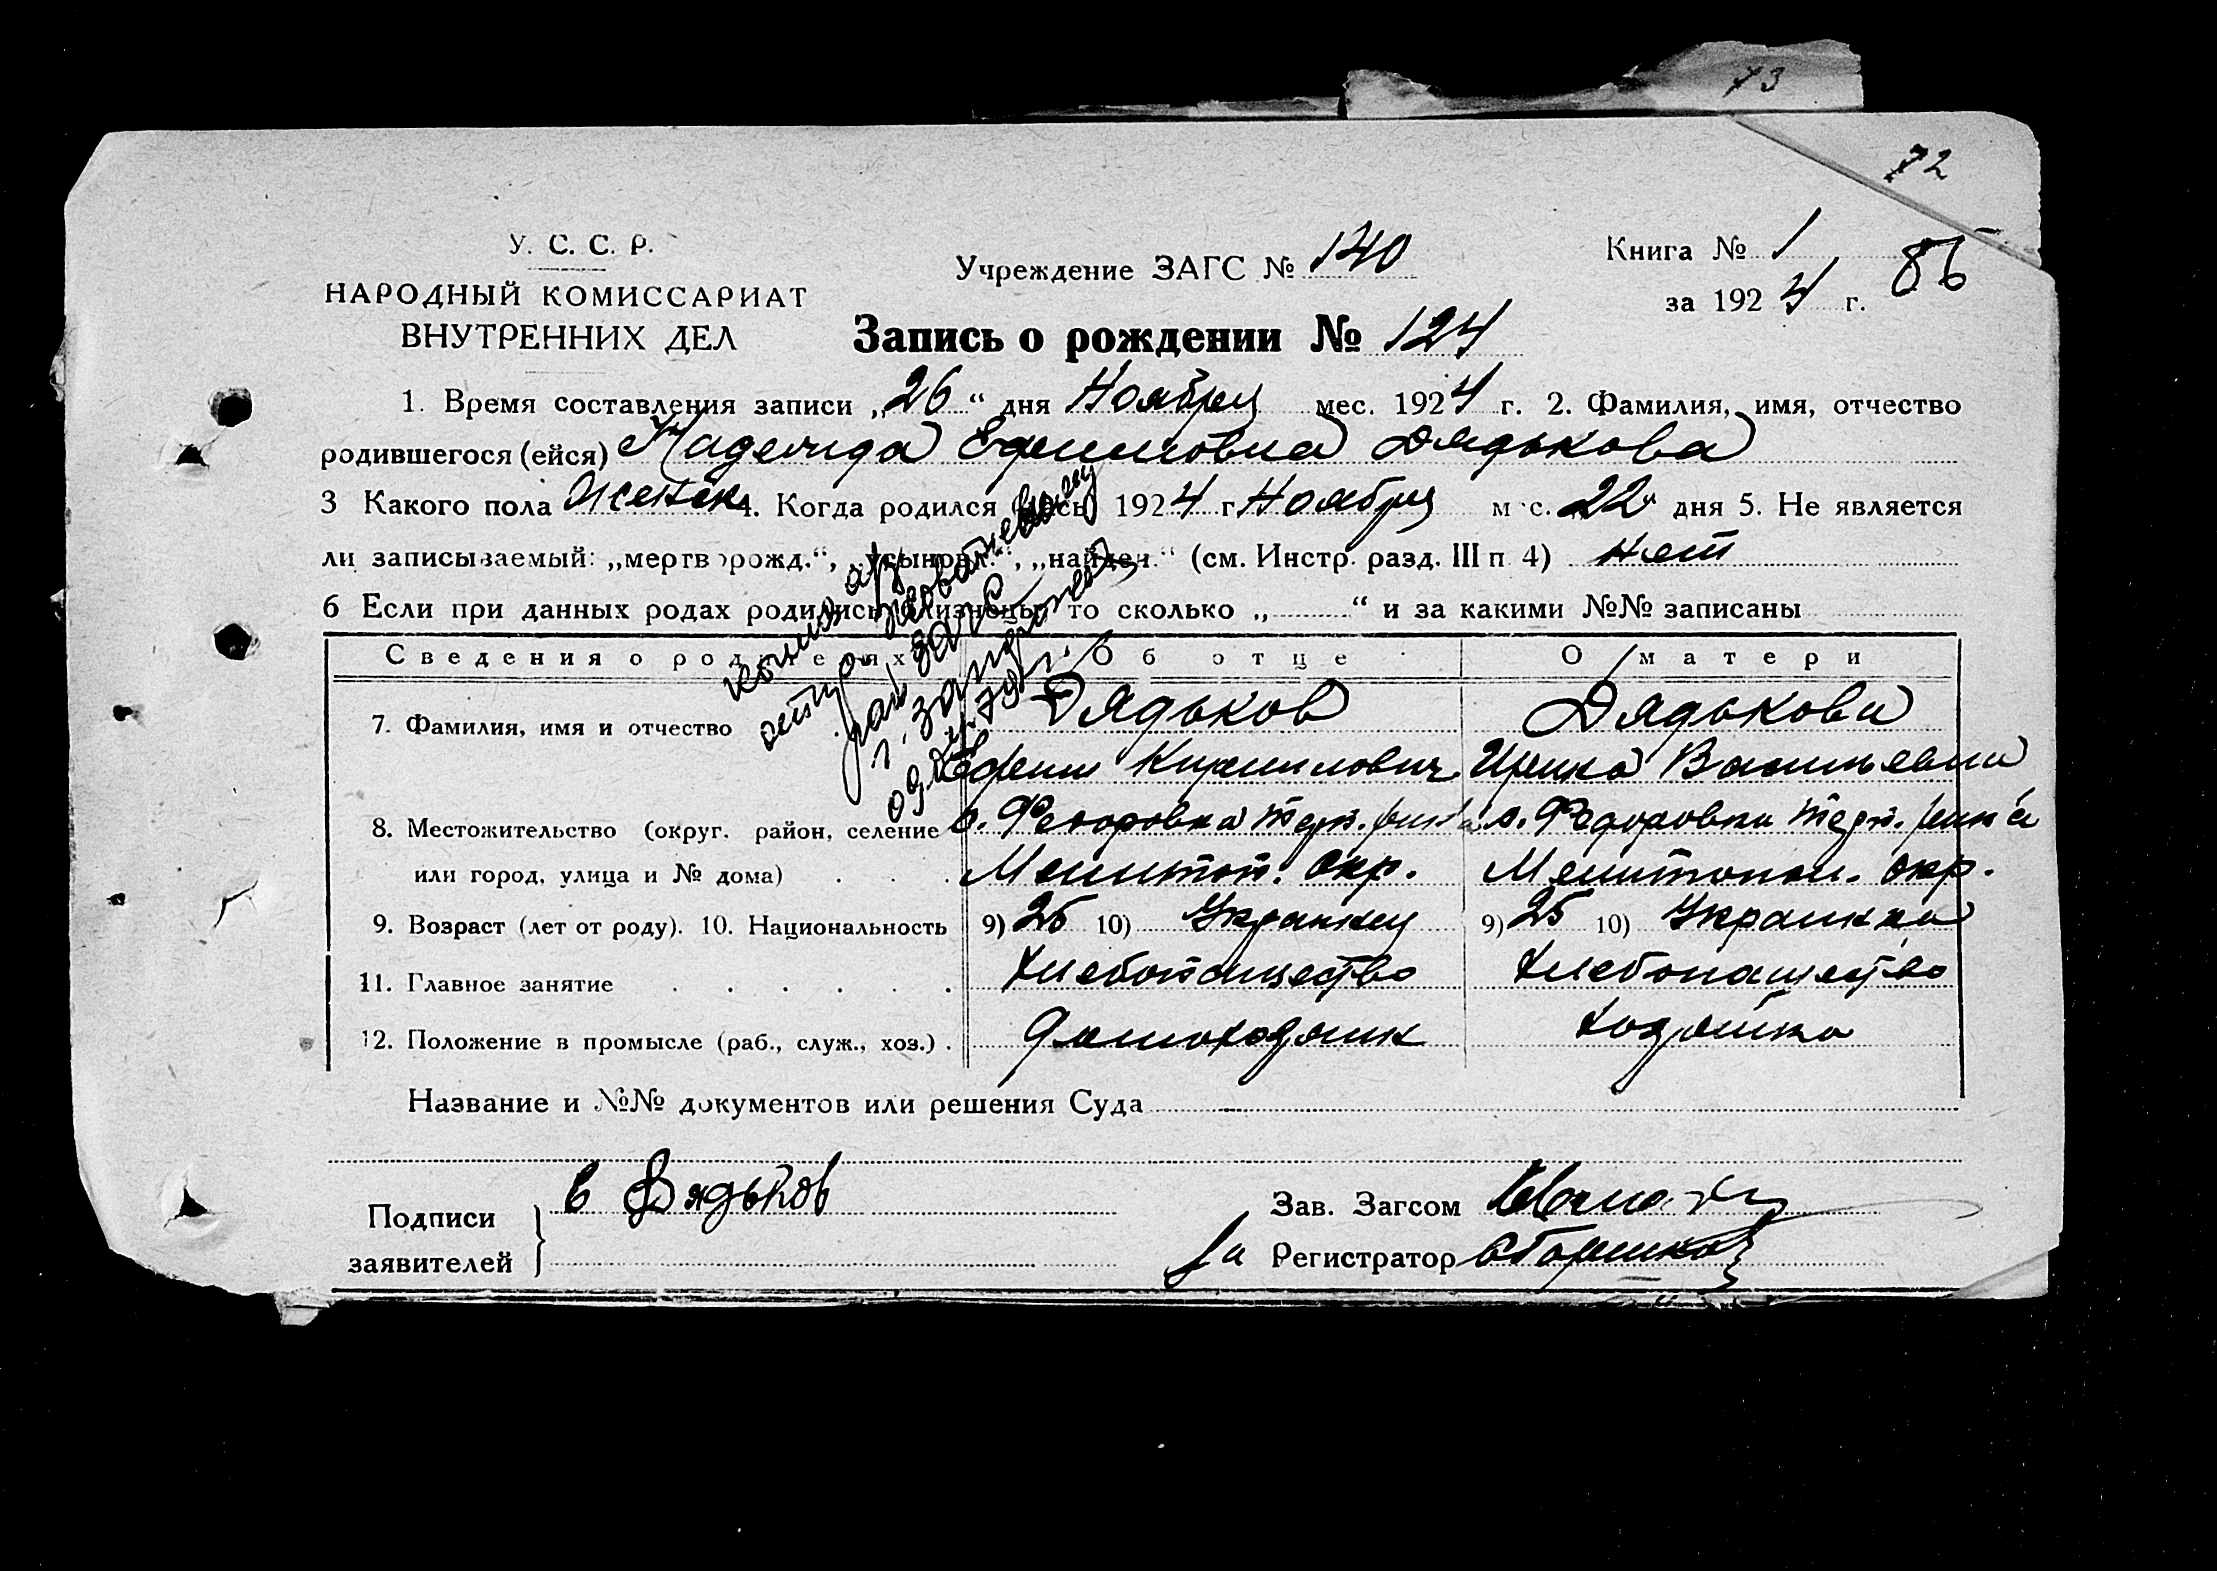 73
72
У. С. С. Р.
НАРОДНЫЙ КОМИССАРИАТ
ВНУТРЕННИХ ДЕЛ
Учреждение ЗАГС № 140
Книга № 1
за 1924 г.
86
Запись о рождении № 124
1. Время составления записи „26“ дня Ноября мес. 1924 г. 2. Фамилия, имя, отчество
родившегося (ейся) Надежда Ефимовна Дядькова
3 Какого пола женск 4. Когда родился (ась) 1924 г. Ноября мес. 22 дня 5. Не является
ли записываемый: „мертворожд.“, „усыновл.“, „найден.“ (см. Инстр. разд. III п 4) нет
6 Если при данных родах родились близнецы, то сколько „ “ и за какими №№ записаны
Сведения о родителях
Об отце
О матери
7. Фамилия, имя и отчество
Дядьков
Дядькова
Ефим Кириллович
Ирина Васильевна
8. Местожительство (округ, район, селение
с. Федоровка Терп.
с. Федоровка Терп.
или город, улица и № дома)
Мелитоп. окр.
Мелитопол. окр.
9. Возраст (лет от роду). 10. Национальность
9) 26 10) Украинец
9) 25 10) Украинка
11. Главное занятие
Хлебопашество
Хлебопашество
12. Положение в промысле (раб., служ., хоз.)
домохозяин
хозяйка
Название и №№ документов или решения Суда
загс
г.
Подписи
заявителей
Е Дядьков
Зав. Загсом
За Регистратор